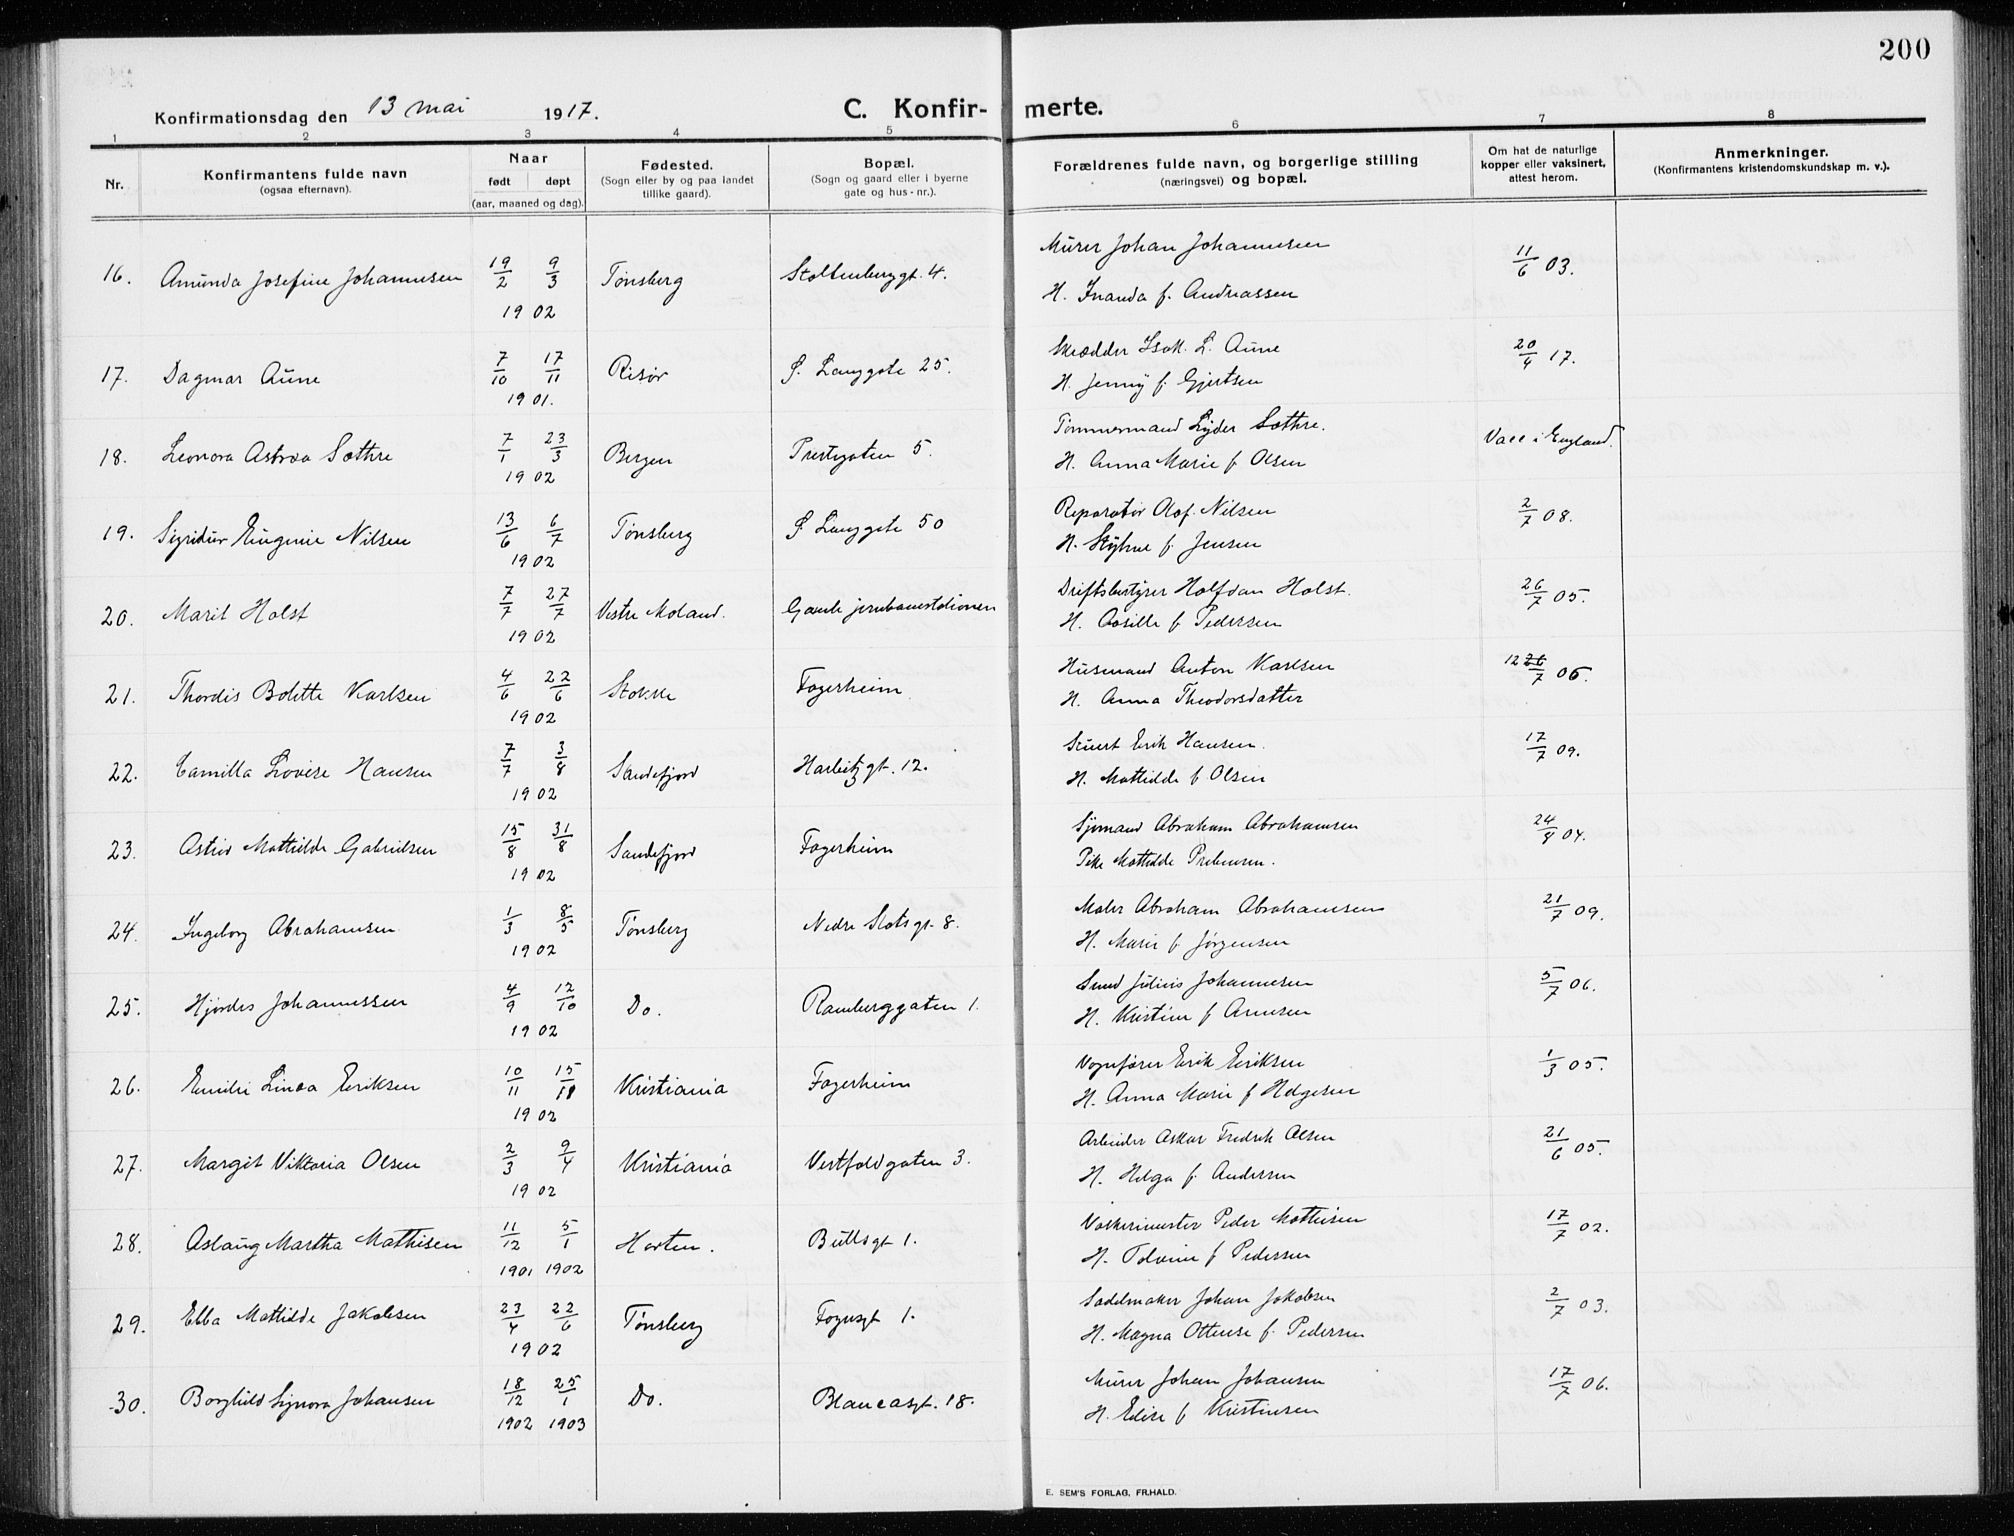 200
Konfirmationsdag den 13 mai 1917.
C. Konfir- merte.
1 2 3 4 5 6 7 8
Nr.
Konfirmantens fulde navn
(ogsaa efternavn).
Naar
født døpt
(aar, maaned og dag).
Fødested.
(Sogn eller by og paa landet
tillike gaard).
Bopæl.
(Sogn og gaard eller i byerne
gate og hus-nr.).
Forældrenes fulde navn, og borgerlige stilling
(næringsvei) og bopæl.
Om hat de naturlige
kopper eller vaksinert,
attest herom.
Anmerkninger.
(Konfirmantens kristendomskundskap m. v.).
16. Amunda Josefine Johannesen 19/2 9/3 1902 Tønsberg Stoltenberggt. 4.
Murer Johan Johannesen 11/6 03.
H. Inanda f. Andreassen
17. Dagmar Aune 7/10 17/11 1901. Risør S. Langgate 25.
Skrædder Isak. L. Aune 20/4 17.
H. Jenny f. Gjertsen
18. Leonora Astrea Sæthre 7/1 23/3 1902 Bergen Prestegaten 5.
Tømmermand Lyder Sæthre. Vacc i England.
H. Anna Marie f Olsen
19. Sigridur Eugenie Nilsen 13/6 6/7 1902 Tønsberg S. Langgate 50
Reparatør Olaf. Nilsen 2/7 08.
H. f. Jensen
20. Marit Holst 7/7 27/7 1902 Vestre Moland. Gamle jernbanestationen
Driftsbestyrer Halfdan Holst. 26/7 05.
H. Aasille f Pedersen
21. Thordis Bolette Karlsen 4/6 22/6 1902 Stokke Fagerheim.
Husmand Anton Karlsen 12 26/7 06.
H. Anna Theodorsdatter
22. Camilla Lovise Hansen 7/7 3/8 1902 Sandefjord Harbitzgt. 12.
Stuert Erik Hansen. 17/7 09.
H. Mathilde f Olsen
23. Astrid Mathilde Gabrielsen 15/8 31/8 1902 Sandefjord Fagerheim
Sjømand Abraham Abrahamsen 24/8 04.
Pike Mathilde Prebensen.
24. Ingeborg Abrahamsen 1/3 8/5 1902 Tønsberg Nedre Slotsgt. 8.
Maler Abraham Abrahamsen 21/7 09.
H. Marie f. Jørgensen
25. Hjørdis Johannessen 4/9 12/10 1902 Do. Ramberggaten 1.
Smed Julius Johannesen 5/7 06.
H. Kristine f Arnesen
26. Emilie Linea Eriksen 10/11 15/11 1902 Kristiania Fagerheim
Vognfører Erik Eriksen 1/3 05.
H. Anna Marie f Helgesen
27. Margit Viktoria Olsen 2/3 9/4 1902 Kristiania Vestfoldgaten 3.
Arbeider Oskar Fredrik Olsen 21/6 05.
H. Helga f. Andersen
28. Aslaug Martha Mathisen 11/12 5/1 1901 1902 Horten. Bullsgt 1.
Vaskerimester Peder Mathisen 17/7 02.
H. Tolvine f Pedersen
29. Ebba Mathilde Jakobsen 23/4 22/6 1902 Tønsberg Fogusgt 1.
Sadelmaker Johan Jakobsen 2/7 03.
H. Magna Ottense f. Pedersen
30. Borghild Signora Johansen 18/12 25/1 1902 1903 Do. Blancasgt. 18.
Murer Johan Johansen 17/7 06.
H. Elise f Kristensen
E. SEM'S FORLAG, FR.HALD.